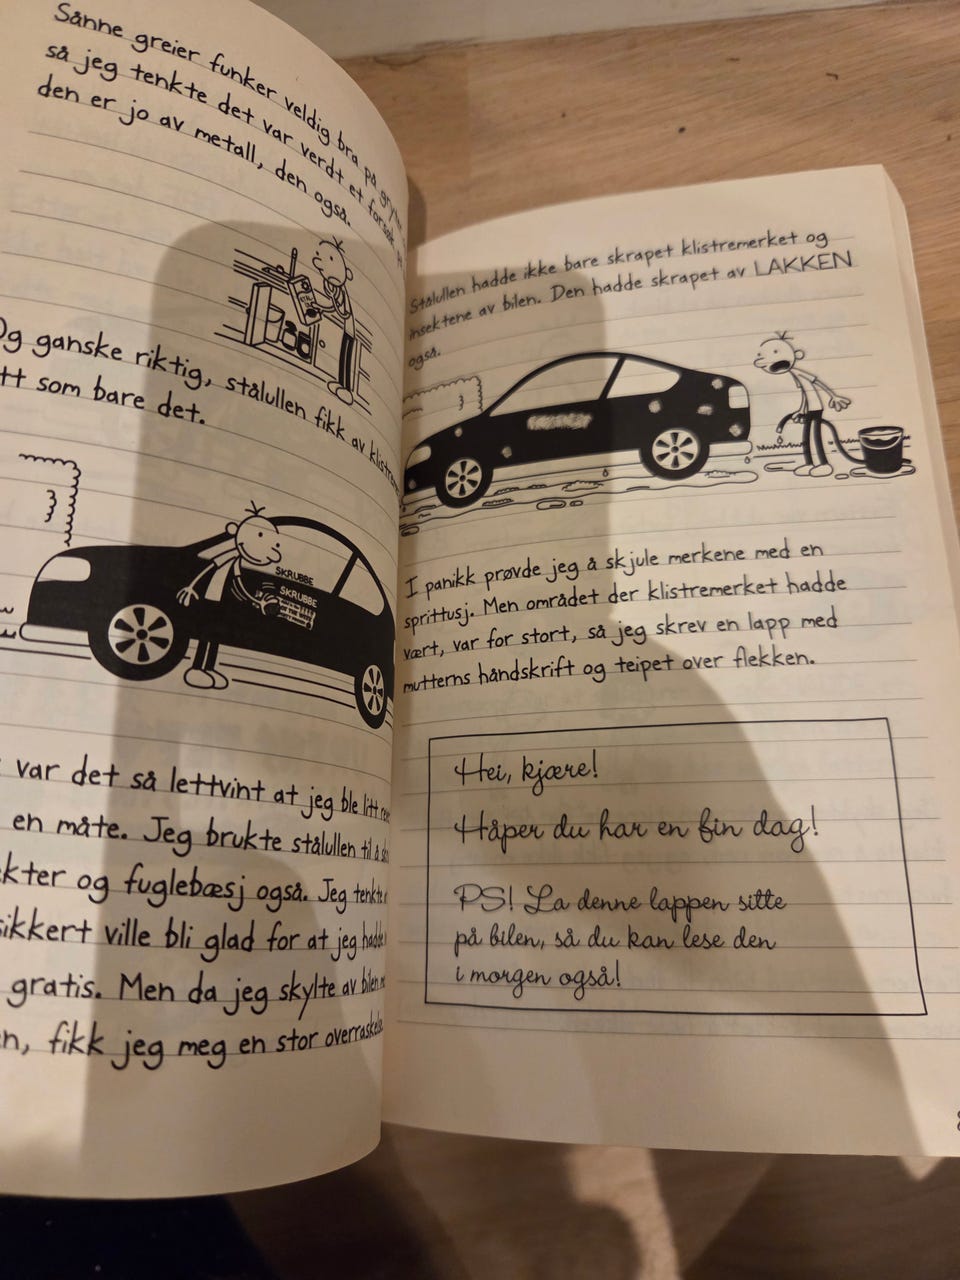 Sånne greier funker veldig bra på
så jeg tenkte det var verdt et forsøk,
den er jo av metall, den også.
Og ganske riktig, stålullen fikk av
som bare det.
SKRUBBE
SKRUBBE
var det så lettvint at jeg ble litt
en måte. Jeg brukte stålullen til å
og fuglebæsj også. Jeg tenkte
ville bli glad for at jeg hadde
gratis. Men da jeg skylte av bilen
fikk jeg meg en stor
Stålullen hadde ikke bare skrapet klistremerket og
insektene av bilen. Den hadde skrapet av LAKKEN
også.
I panikk prøvde jeg å skjule merkene med en
sprittusj. Men området der klistremerket hadde
vært, var for stort, så jeg skrev en lapp med
mutterns håndskrift og teipet over flekken.
Hei, kjære!
Håper du har en fin dag!
PS! La denne lappen sitte
på bilen, så du kan lese den
i morgen også!